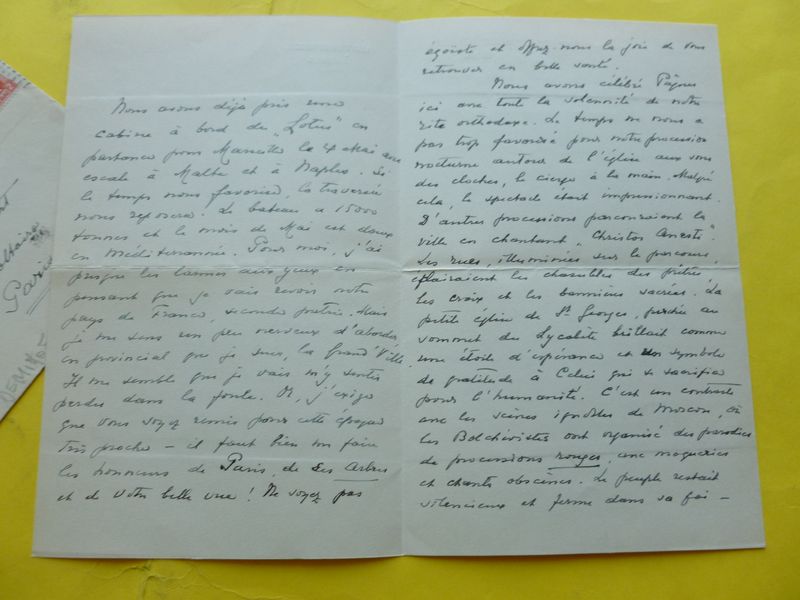 Nous avons déjà pris une
cabine à bord du „Lotus" en
partance pour Marseille le 4 Mai avec
escale à Malte et à Naples. Si
le temps nous favorise, la traversée
nous reposera. Le bateau a 15000
tonnes et le mois de Mai est doux
en Méditerranée. Pour moi, j'ai
presque les larmes aux yeux en
pensant que je vais revoir votre
pays de France, seconde patrie. Mais
je me sens un peu nerveux d'aborder,
en provincial que je suis, la Grand' Ville.
Il me semble que je vais m'y sentir
perdu dans la foule. Or, j'exige
que vous soyez remis pour cette époque
très proche — il faut bien me faire
les honneurs de Paris, de ses arbres
et de votre belle vue ! Ne soyez pas
égoïste et offrez-nous la joie de vous
retrouver en belle santé.
Nous avons célébré Pâques
ici avec toute la solennité de notre
rite orthodoxe. Le temps ne nous a
pas trop favorisé pour notre procession
nocturne autour de l'église aux sons
des cloches, le cierge à la main. Malgré
cela, le spectacle était impressionnant.
D'autres processions parcouraient la
ville en chantant „Christos Anesti".
Les rues, illuminées sur le parcours,
éclairaient les chasubles des prêtres,
les croix et les bannières sacrées. La
petite église de St Georges, perchée au
sommet du Lycabète brillait comme
une étoile d'espérance et un symbole
de gratitude à Celui qui se sacrifia
pour l'humanité. C'est un contraste
avec les scènes ignobles de Moscou, où
les Bolchevistes ont organisé des parodies
de processions rouges, avec moqueries
et chants obscènes. Le peuple restait
silencieux et ferme dans sa foi —
Voltaire
Paris